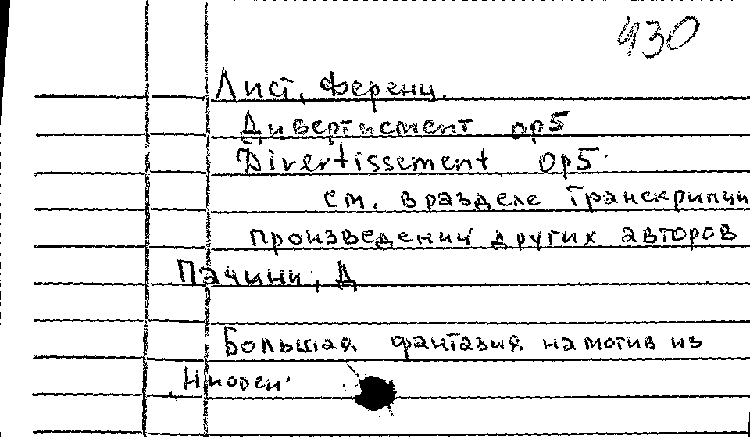 430
Лист, Ференц.
Дивертисмент ор5
Divertissement op5
см. в разделе Транскрипции
произведений других авторов
Пачини, Д
Большая фантазия на мотив из
"Ниобеи"